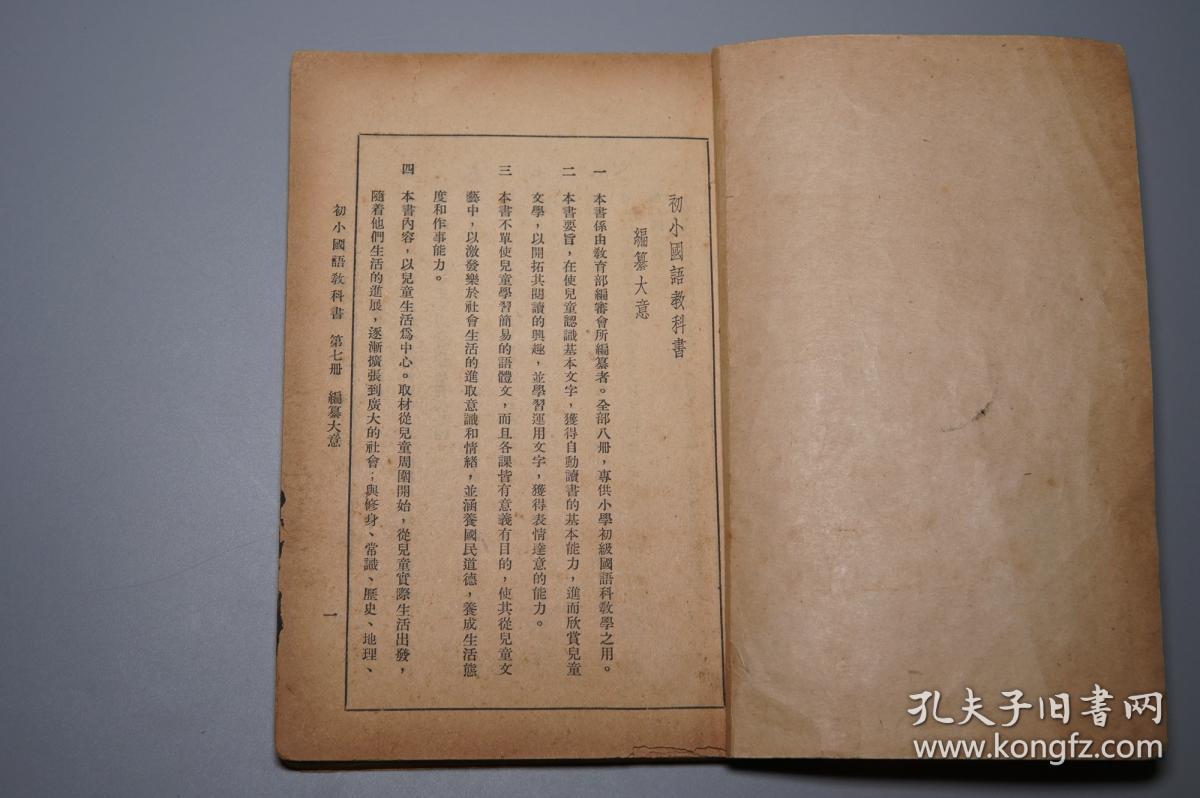 初小國語教科書
編纂大意
一 本書係由教育部編審會所編纂者。全部八册，專供小學初級國語科教學之用。
二 本書要旨，在使兒童認識基本文字，獲得自動讀書的基本能力，進而欣賞兒童
文學，以開拓其閱讀的興趣，並學習運用文字，獲得表情達意的能力。
三 本書不單使兒童學習簡易的語體文，而且各課皆有意義有目的，使其從兒童文
藝中，以激發樂於社會生活的進取意識和情緒，並涵養國民道德，養成生活態
度和作事能力。
四 本書內容，以兒童生活爲中心。取材從兒童周圍開始，從兒童實際生活出發，
隨着他們生活的進展，逐漸擴張到廣大的社會；與修身、常識、歷史、地理、
初小國語教科書 第七册 編纂大意 一
孔夫子旧书网
www.kongfz.com